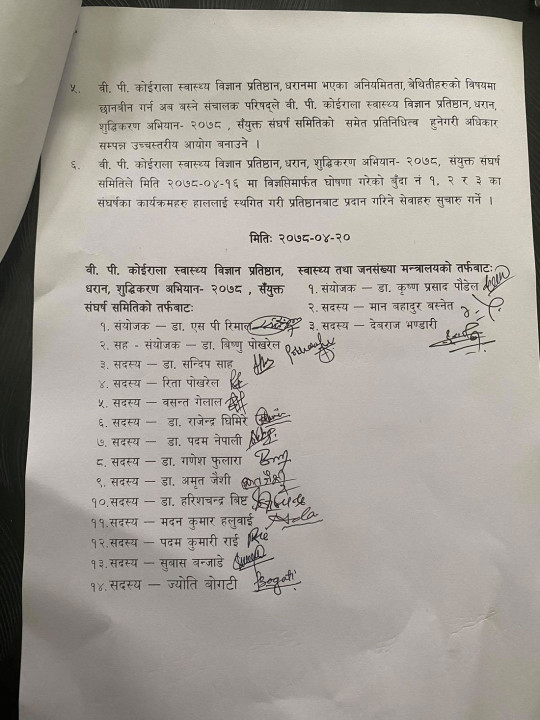 ५. वी. पी. कोईराला स्वास्थ्य विज्ञान प्रतिष्ठान, धरानमा भएका अनियमितता, बेथितीहरुको विषयमा
छानबीन गर्न अब बस्ने संचालक परिषद्ले वी. पी. कोईराला स्वास्थ्य विज्ञान प्रतिष्ठान, धरान,
शुद्धिकरण अभियान- २०७८ , सँयुक्त संघर्ष समितिको समेत प्रतिनिधित्व हुनेगरी अधिकार
सम्पन्न उच्चस्तरीय आयोग बनाउने ।
६. वी. पी. कोईराला स्वास्थ्य विज्ञान प्रतिष्ठान, धरान, शुद्धिकरण अभियान- २०७८, संयुक्त संघर्ष
समितिले मिति २०७८-०४-१६ मा विज्ञप्तिमार्फत घोषणा गरेको बुँदा नं १, २ र ३ का
संघर्षका कार्यक्रमहरु हाललाई स्थगित गरी प्रतिष्ठानबाट प्रदान गरिने सेवाहरु सुचारु गर्ने ।
मितिः २०७८-०४-२०
वी. पी. कोईराला स्वास्थ्य विज्ञान प्रतिष्ठान,
धरान, शुद्धिकरण अभियान- २०७८ , सँयुक्त
संघर्ष समितिको तर्फबाटः
१. संयोजक – डा. एस पी रिमाल
२. सह - संयोजक – डा. विष्णु पोखरेल
३. सदस्य – डा. सन्दिप साह
४. सदस्य – रिता पोखरेल
५. सदस्य – वसन्त गेलाल
६. सदस्य – डा. राजेन्द्र घिमिरे
७. सदस्य – डा. पदम नेपाली
८. सदस्य – डा. गणेश फुलारा
९. सदस्य – डा. अमृत जैशी
१०. सदस्य – डा. हरिशचन्द्र बिष्ट
११. सदस्य – मदन कुमार हलुवाई
१२. सदस्य – पदम कुमारी राई
१३. सदस्य – सुबास बन्जाडे
१४. सदस्य – ज्योति बोगटी Bogati
स्वास्थ्य तथा जनसंख्या मन्त्रालयको तर्फबाटः
१. संयोजक – डा. कृष्ण प्रसाद पौडेल
२. सदस्य – मान बहादुर बस्नेत
३. सदस्य – देबराज भण्डारी